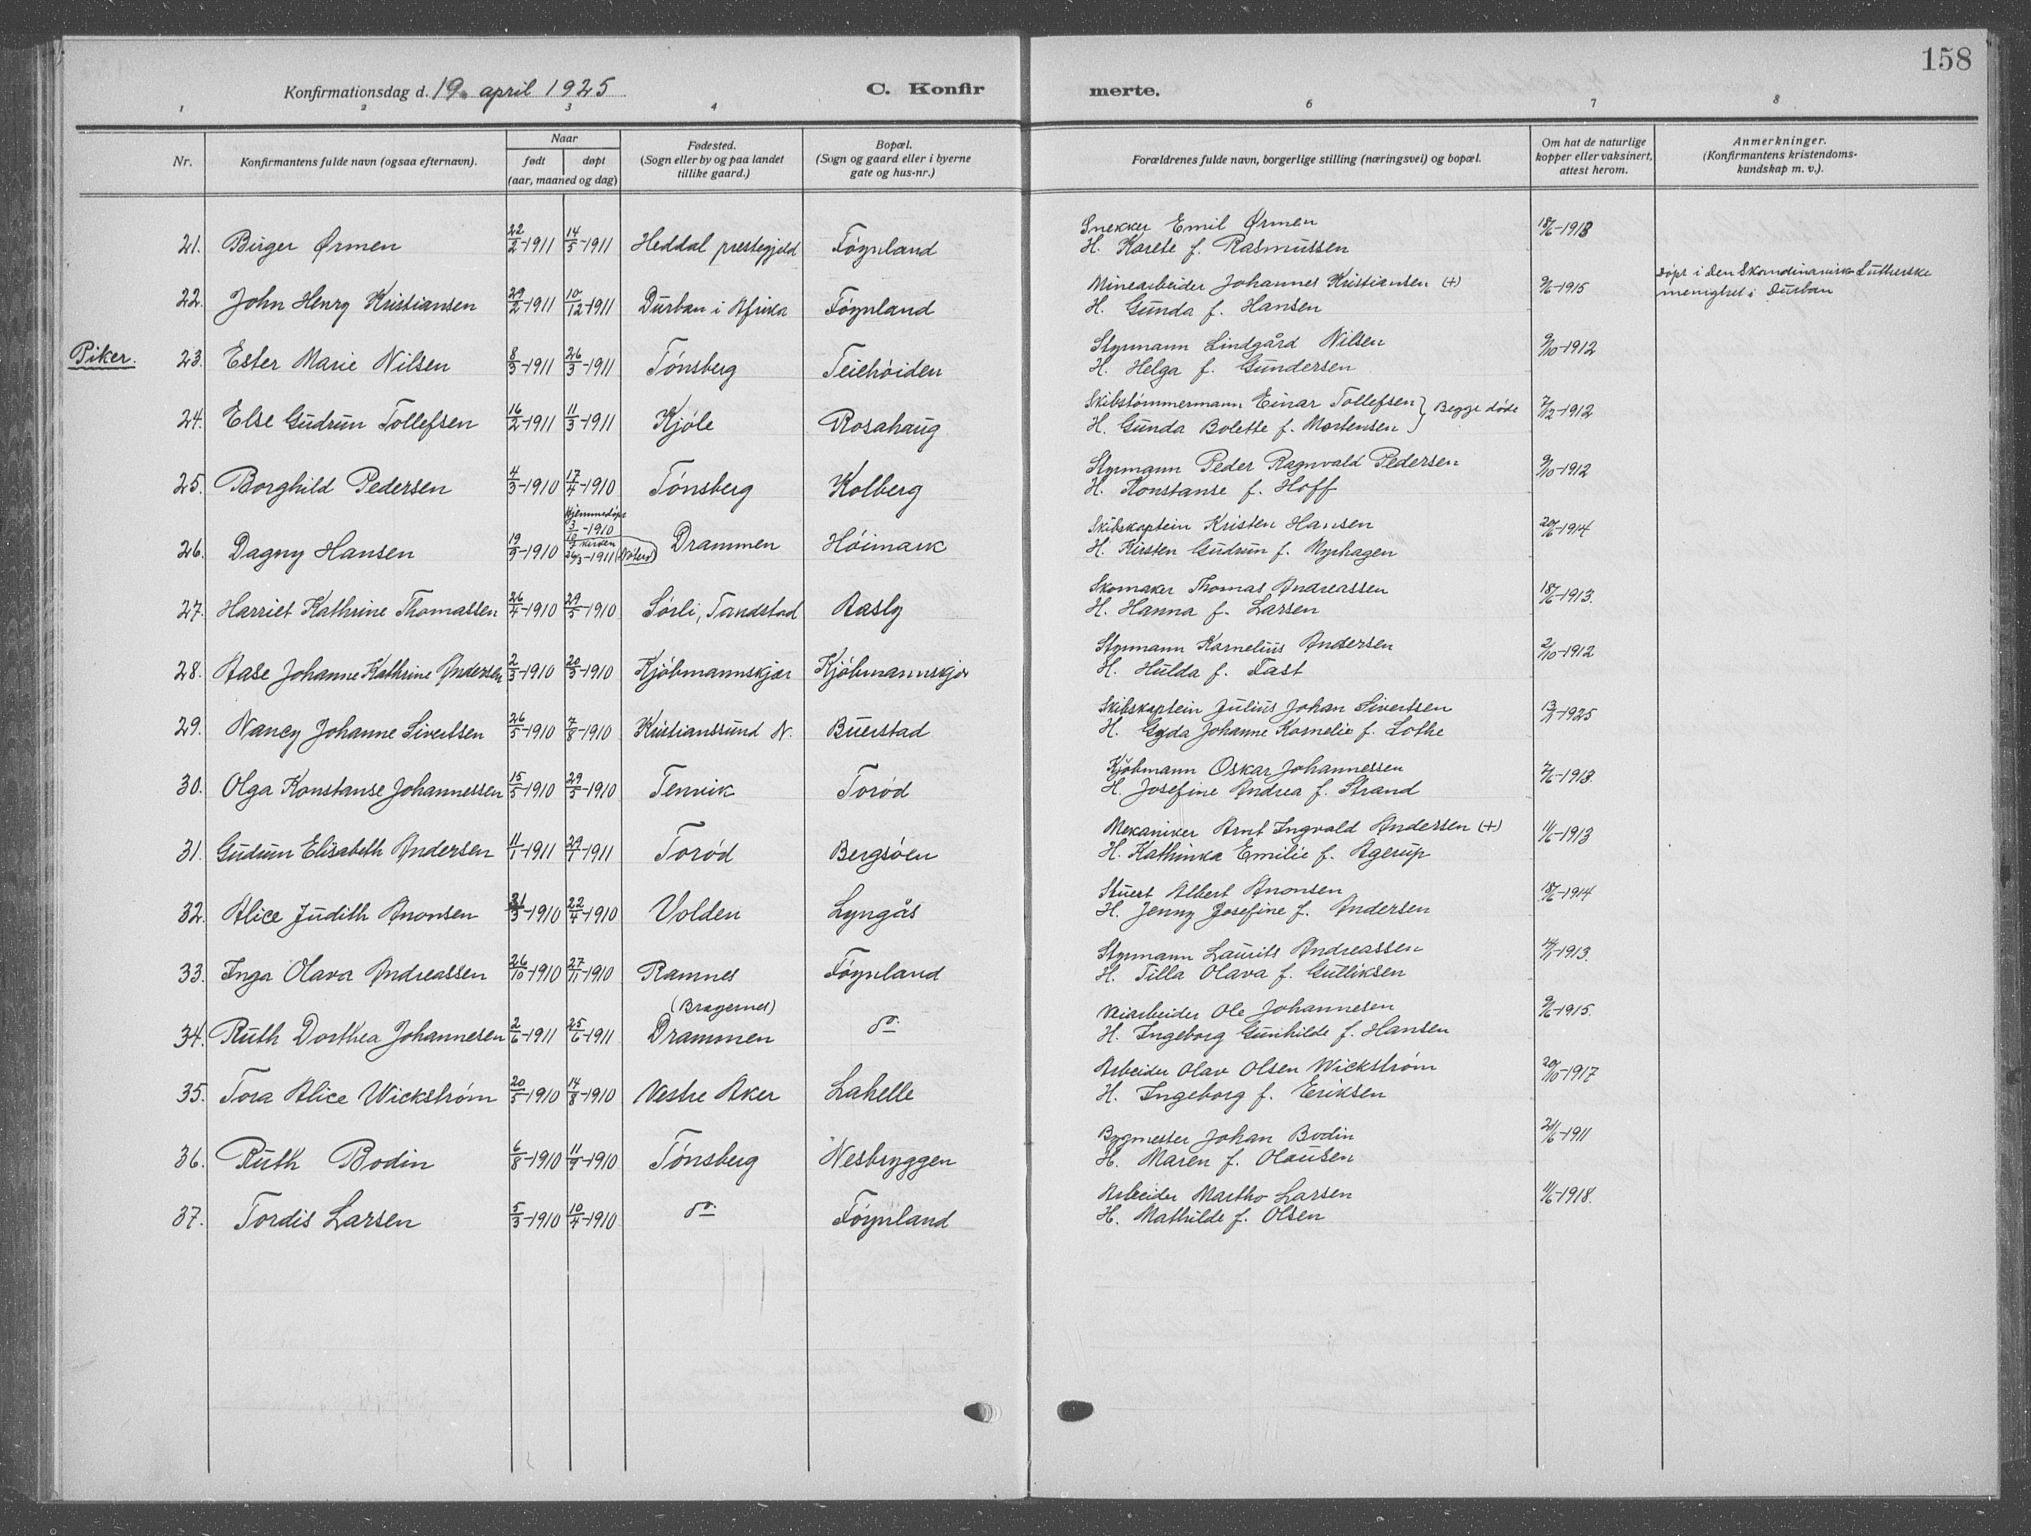 158
Konfirmationsdag d. 19. april 1925
C. Konfirmerte.
1 2 3 4 6 7 8
Nr. Konfirmantens fulde navn (ogsaa efternavn). Naar født døpt (aar, maaned og dag) Fødested. (Sogn eller by og paa landet tillike gaard.) Bopæl. (Sogn og gaard eller i byerne gate og hus-nr.) Forældrenes fulde navn, borgerlige stilling (næringsvei) og bopæl. Om hat de naturlige kopper eller vaksinert, attest herom. Anmerkninger. (Konfirmantens kristendoms-kundskap m. v.).
21. Birger Ørmen 22/2-1911 14/5-1911 Heddal prestegjeld Føynland Snekker Emil Ørmen 18/6-1918
H. Karete f. Rasmussen
22. John Henry Kristiansen 29/2-1911 10/12-1911 Durban i Afrika Føynland Minearbeider Johannes Kristiansen (+) 9/6-1915 Døpt i den Skandinaviske Lutherske
H. Gunda f. Hansen menighet i Durban
Piker.
23. Ester Marie Nilsen 8/3-1911 26/3-1911 Tønsberg Teiehøiden Styrmann Lindgård Nilsen 9/10-1912
H. Helga f. Gundersen
24. Else Gudrun Tollefsen 16/2-1911 11/3-1911 Kjøle Rosahaug Skibstømmermann Einar Tollefsen } Begge døde 7/12-1912
H. Gunda Bolette f. Mortensen
25. Borghild Pedersen 4/3-1910 17/4-1910 Tønsberg Kolberg Styrmann Peder Ragnvald Pedersen 9/10-1912
H. Konstanse f. Hoff
26. Dagny Hansen 19/3-1910 Hjemmedøpt 3/10-1910 i kirken 26/3-1911 Drammen Høimark Skibskaptein Kristen Hansen 20/6-1914
H. Kirsten Gudrun f. Myrhagen
27. Harriet Kathrine Thomassen 26/4-1910 29/5-1910 Sørli, Tandstad Aasly Skomaker Thomas Andreassen 18/6-1913.
H. Hanna f. Larsen
28. Aase Johanne Kathrine Andersen 2/3-1910 20/3-1910 Kjøbmannskjær Kjøbmannskjær Styrmann Kornelius Andersen 2/10-1912
H. Hulda f. Fast
29. Nancy Johanne Sivertsen 26/5-1910 7/8-1910 Kristianssund N. Buerstad Skibskaptein Julius Johan Sivertsen 13/2-1925
H. Gyda Johanne Kornelie f. Lothe
30. Olga Konstanse Johannessen 15/5-1910 29/5-1910 Tenvik Torød Kjøbmann Oskar Johannessen 7/6-1918
H. Josefine Andrea f. Strand
31. Gudrun Elisabeth Andersen 11/1-1911 29/1-1911 Torød Bergsøen Mekaniker Arnt Ingvald Andersen (+) 11/6-1913
H. Kathinka Emilie f. Agerup
32. Alice Judith Anonsen 31/3-1910 22/4-1910 Volden Lyngås Stuert Albert Anonsen 18/6-1914
H. Jenny Josefine f. Andersen
33. Inga Olava Andreassen 26/10-1910 27/11-1910 Ramnes Føynland Styrmann Laurits Andreassen -1913.
H. Tilla Olava f. Gulliksen
34. Ruth Dorthea Johannesen 2/6-1911 25/6-1911 (Bragernes) Drammen do. Veiarbeider Ole Johannesen 9/6-1915.
H. Ingeborg Gunhilde f. Hansen
35. Tora Alice Wickstrøm 20/5-1910 14/8-1910 Vestre Aker Lahelle Arbeider Olav Olsen Wickstrøm 20/10-1917
H. Ingeborg f. Eriksen
36. Ruth Bodin 6/8-1910 11/9-1910 Tønsberg Nesbryggen Bygmester Johan Bodin 21/6-1911
H. Maren f. Olausen
37. Tordis Larsen 5/3-1910 10/4-1910 do. Føynland Arbeider Martho Larsen 11/6-1918.
H. Mathilde f. Olsen